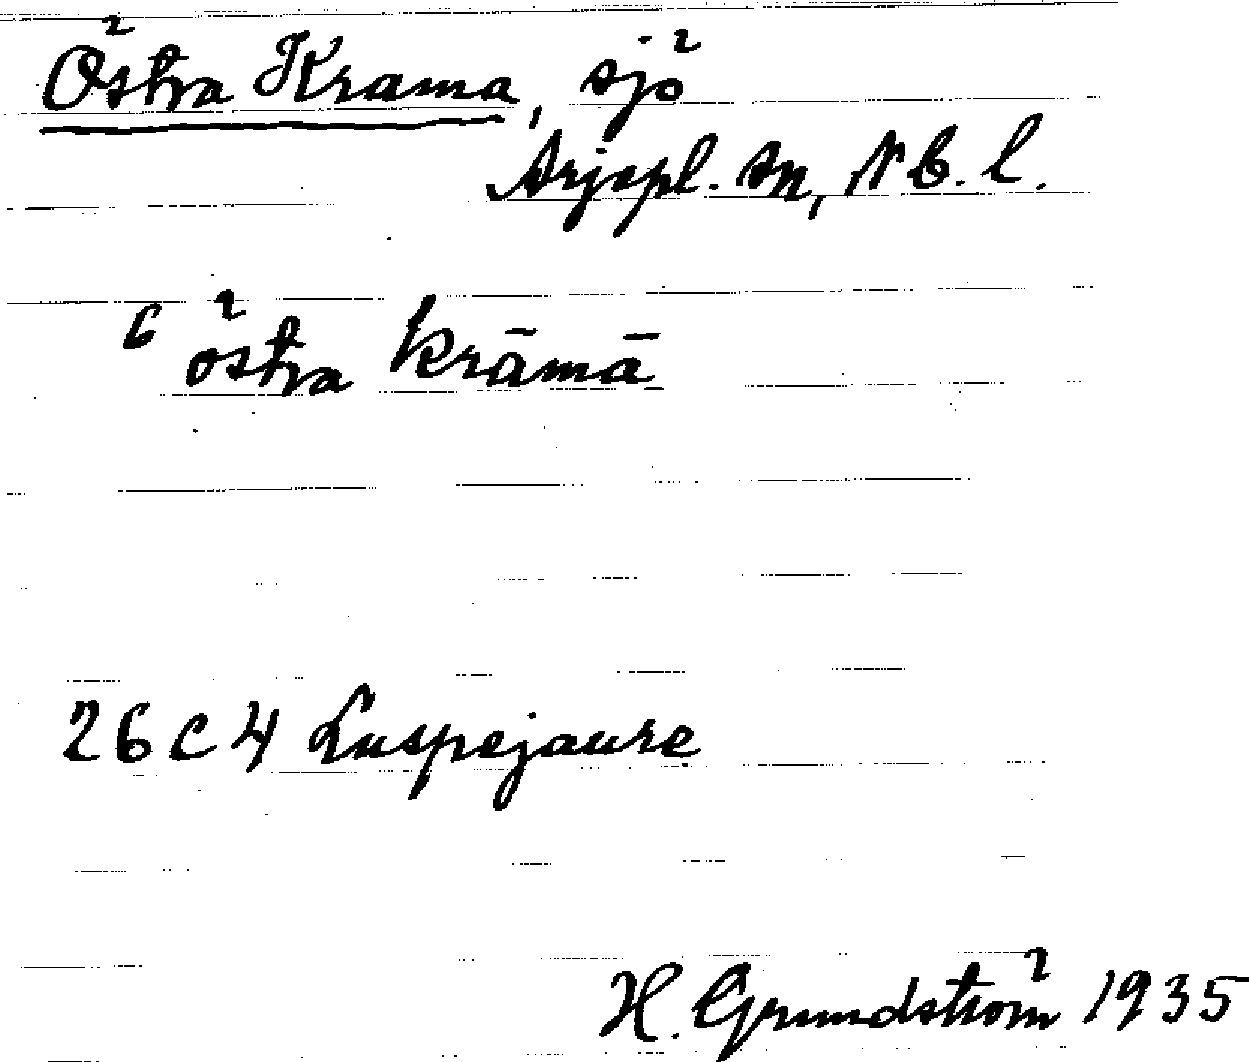 Östra Krama, sjö
Arjepl. sn, N B. l.
6 östra krāmā
26 C 4 Luspejaure
H. Grundström 1935